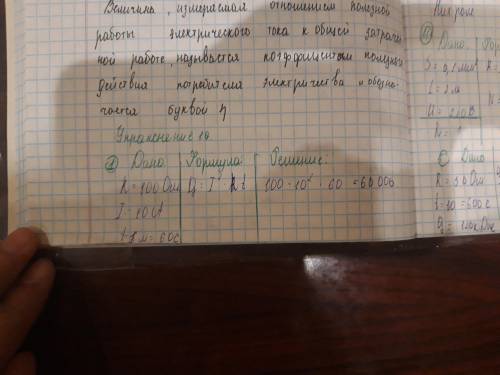 Величина, измеряемая отношением полезной
работы электрического тока к общей затрачен
ной работе, называется коэффициентом полезного
действия потребителя электричества и обозна-
чается буквой η
Упражнение 10.
① Дано: Формула: Решение:
R = 100 Ом Q = I² · R t 100 · 10² · 60 = 60 000
I = 10 А
t 1 м = 60с
Дано
S = 0,1 мм²
L = 2 м
U = 220 В
Дано
R = 30 Ом
t = 10 = 600 с